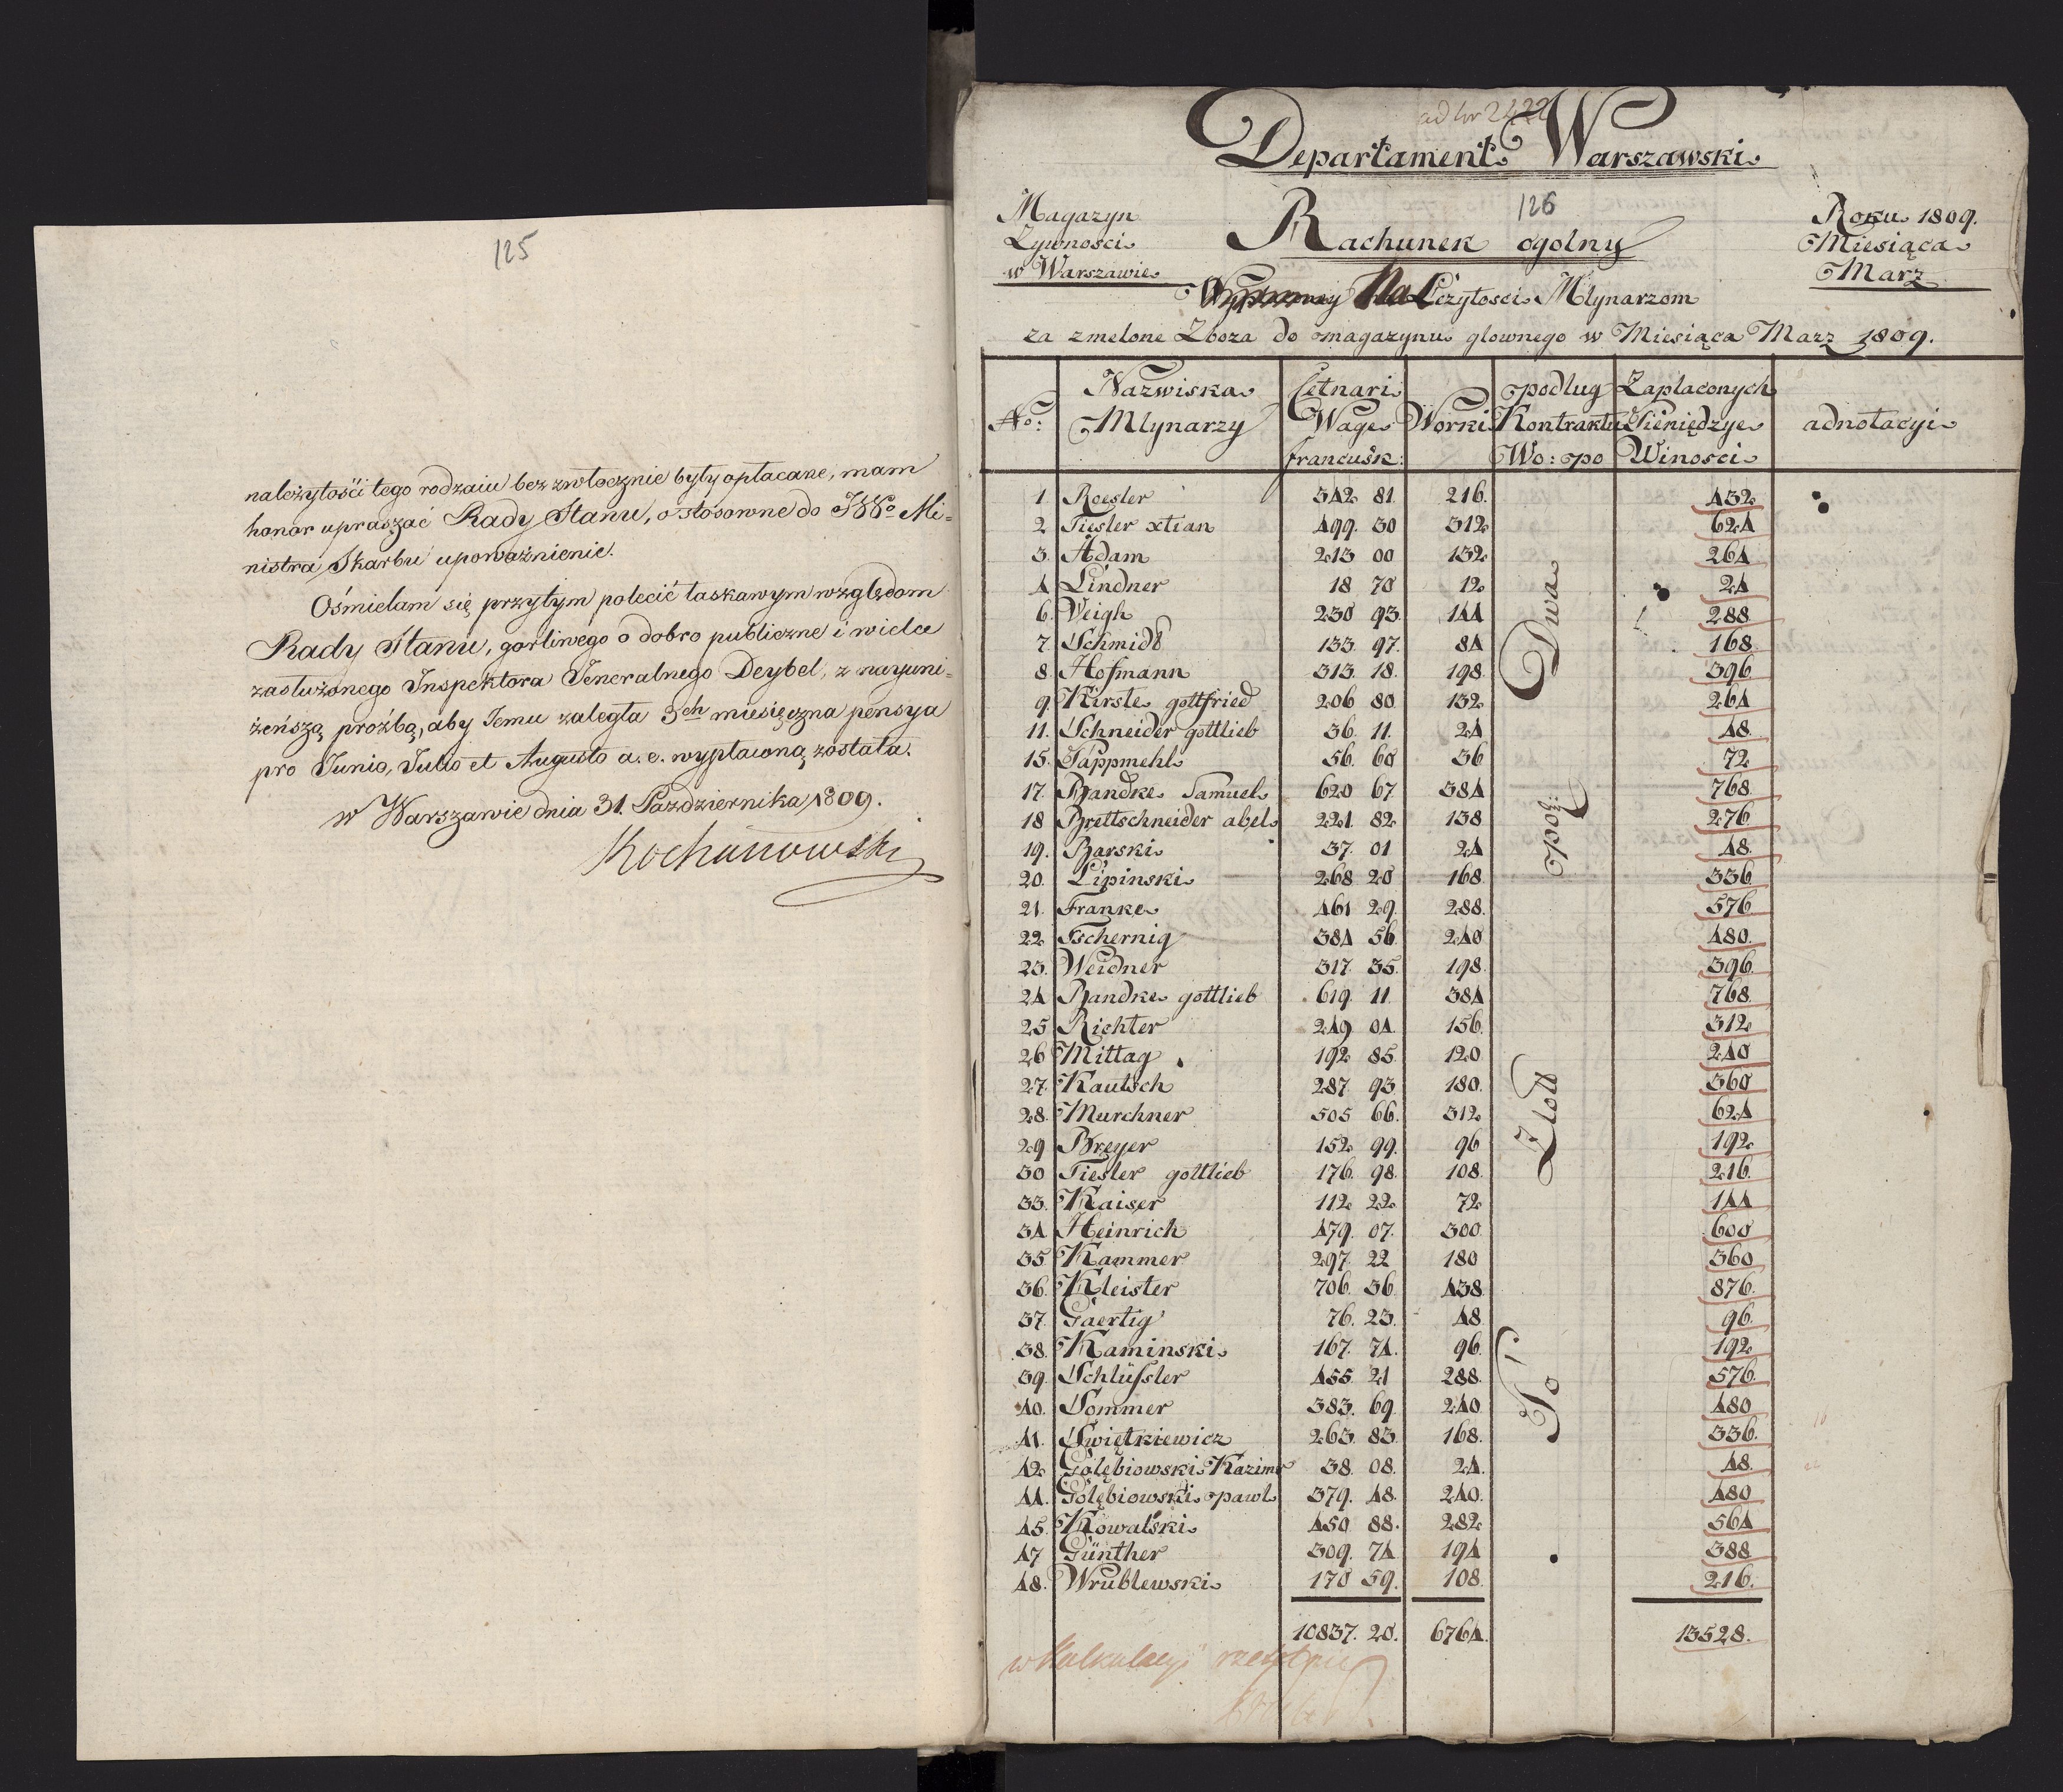 125
należytości tego rodzaiu bez zwłocznie były opłacane, mam
honor upraszać Rady Stanu, o stosowne do JWo Mi-
nistra Skarbu upoważnienie.
Ośmielam się przytym polecić łaskawym względom
Rady Stanu, gorliwego o dobro publiczne i wielce
zasłużonego Inspektora Generalnego Deybel, z nayuni-
żeńszą proźbą, aby Jemu zaległa 3ch miesięczna pensya
pro Junio, Julio et Augusto a. c. wypłaconą została.
w Warszawie dnia 31. Października 1809.
Kochanowski
ad Nr 2422
Departament Warszawski
126
Magazyn
Zywnosci
w Warszawie
Rachunek ogolny
Roku 1809.
Miesiąca
Marz
Na Liczytosci Mlynarzom
za zmelone Zboza do magazynu glownego w Miesiąca Marz 1809.
No: Nazwiska Mlynarzy Cetnari Wage francusk: Worki podlug Kontraktu Wo: po Zaplaconych Pieniędzye Winosci adnotacyi
1. Roesler 342 81. 216. 432
2 Tiesler xtian 499. 30 312 624
3. Adam 213 00 132 264
4 Lindner 18 70 12 24
6. Veigh 230 93. 144 288
7. Schmidt 133. 97. 84 168
8. Hofmann 313. 18. 198. 396
9. Kirste gottfried 206 80 132 264
11. Schneider gottlieb 36. 11. 24 48.
15. Pappmehl 56. 60 36 72
17. Bandke Samuel 620 67 384 768.
18 Brettschneider abel 221. 82 138 276
19. Barski 37. 01 24 48.
20. Lipinski 268 20 168 336
21. Franke 461 29. 288. 576
22 Tschernig 384 56. 240 480.
23. Weidner 317. 35. 198. 396.
24 Bandke gottlieb 619. 11. 384 768.
25 Richter 249 04. 156. 312
26 Mittag 192 85. 120 240
27. Kautsch 287 93 180. 360
28. Murchner 505 66. 312 624
29 Breyer 152 99. 96 192
30 Tiesler gottlieb 176. 98. 108. 216.
33. Kaiser 112 22 72 144
34 Heinrich 479. 07. 300 600
35. Kammer 297. 22 180 360
36. Kleister 706. 36 438 876.
37. Gaertig 76. 23. 48 96.
38. Kaminski 167. 74. 96. 192
39. Schlüssler 455 21 288. 576.
40. Sommer 383. 69. 240 480
41. Swiętkiewicz 263. 83. 168. 336.
42 Golębiowski Kazimir 38. 08. 24. 48.
44. Golębiowski pawl 379. 48. 240. 480
45. Kowalski 450 88. 282 564
47 Günther 309. 74 194 388
48. Wrublewski 170 59. 108. 216.
Po Zlott pol: Dwa
10837. 20. 6764. 13528.